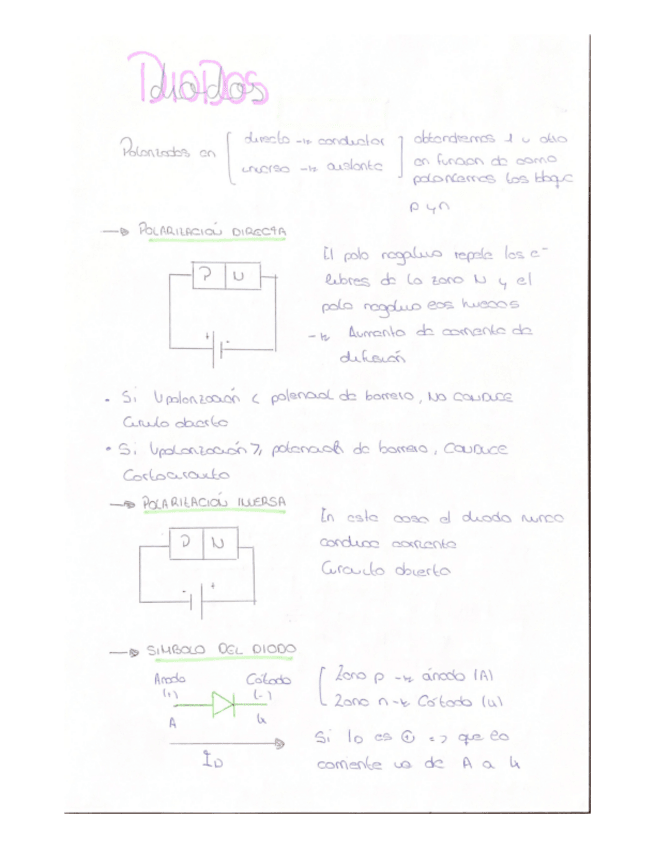 Diodos
Polarizados en directo → conductor
inverso → aislante
obtendremos 1 u otro
en funcion de como
polaricemos los bloque
p y n
→ POLARIZACIÓN DIRECTA
P N
+ -
El polo negativo repele los e-
libres de la zona N y el
polo negativo los huecos
→ Aumento de corriente de
difusión
• Si Vpolarización < potencial de barrera, NO CONDUCE
Circuito abierto
• Si Vpolarización ≥ potencial de barrera, CONDUCE
Cortocircuito
→ POLARIZACIÓN INVERSA
P N
- +
En este caso el diodo nunca
conduce corriente
Circuito abierto
→ SIMBOLO DEL DIODO
Anodo Cátodo
(+) (-)
A k
ID
Zona p → ánodo (A)
Zona n → Cátodo (k)
Si ID es + => que la
corriente va de A a k